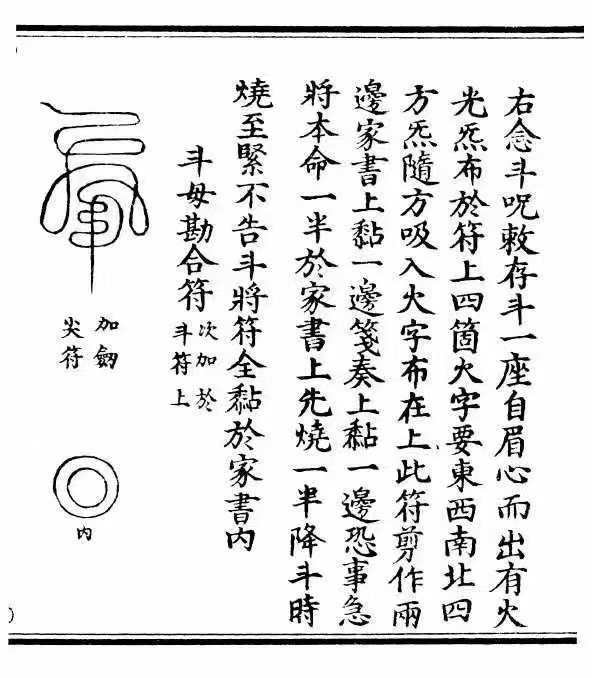 右念斗呪敕存斗一座自眉心而出有火
光炁布於符上四箇火字要東西南北四
方炁隨方吸入火字布在上此符剪作兩
邊家書上黏一邊箋奏上黏一邊恐事急
將本命一半於家書上先燒一半降斗時
燒至緊不告斗將符全黏於家書內
斗母勘合符
次加於
斗符上
加劔
尖符
內